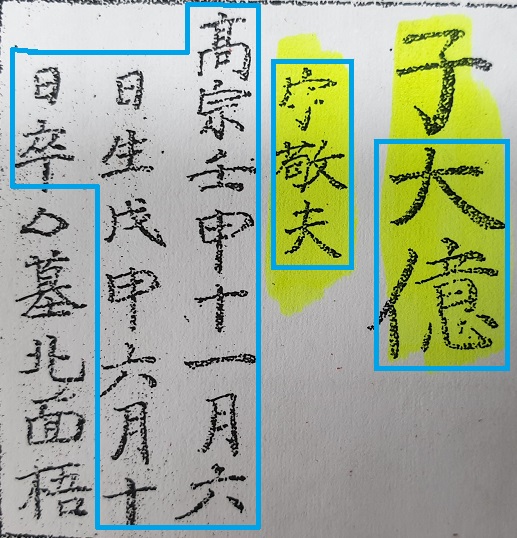 子大億
字敬夫
髙宗壬申十一月六
日生戊甲六月十
日卒〇墓北面梧